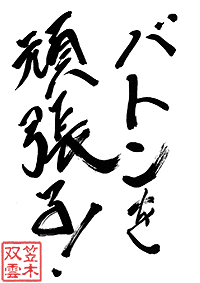 バトンを
頑張る!
笠木
双雲